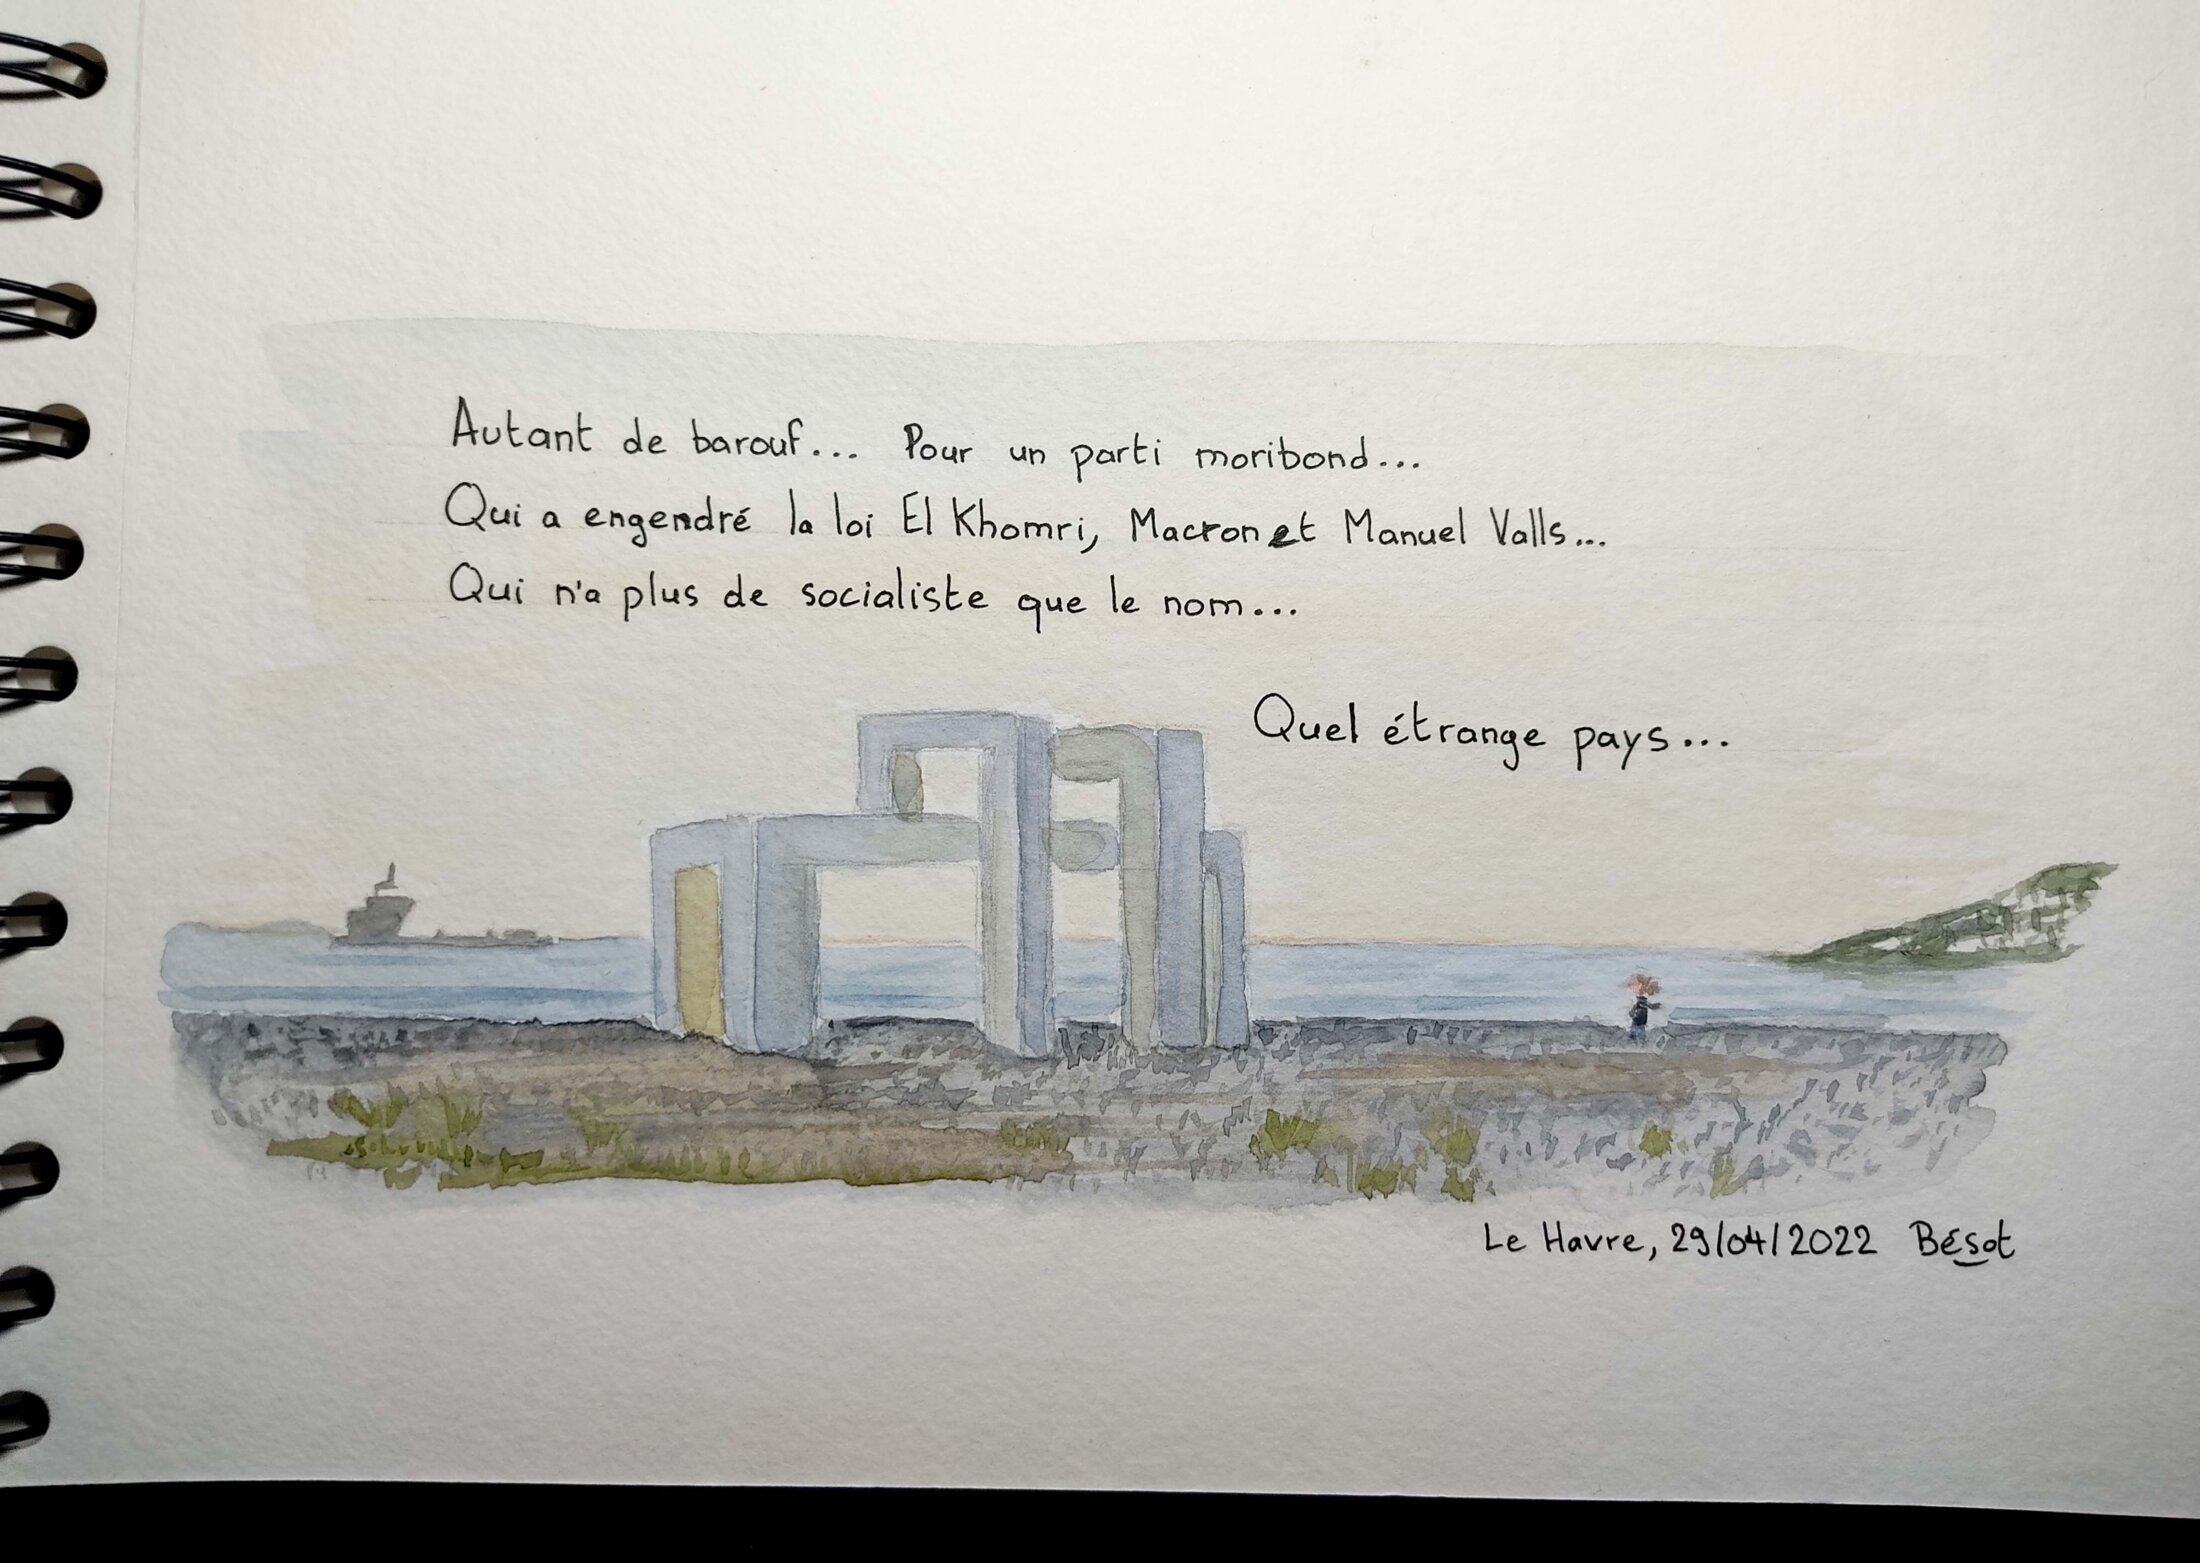 Autant de barouf... Pour un parti moribond...
Qui a engendré la loi El Khomri, Macron et Manuel Valls...
Qui n'a plus de socialiste que le nom...
Quel étrange pays...
Le Havre, 29/04/2022 Bésot